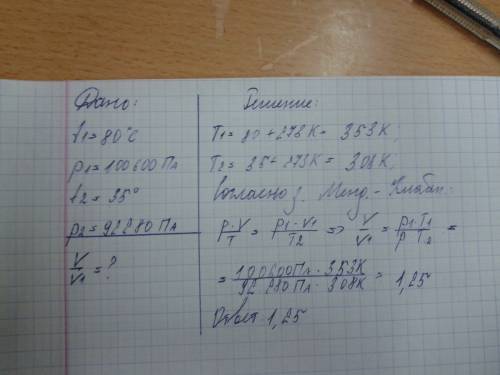 Дано:
t1=80°C
p1=100600 Па
t2=35°
p2=92280 Па
V/V1=?
Решение:
T1=80+273K=353K;
T2=35+273K=308K;
Согласно з. Менд.-Клапей.
p·V/T=p1·V1/T2=>V/V1=p1·T1/p T2=
=100600Па·353K/92280Па·308K=1,25
Ответ 1,25